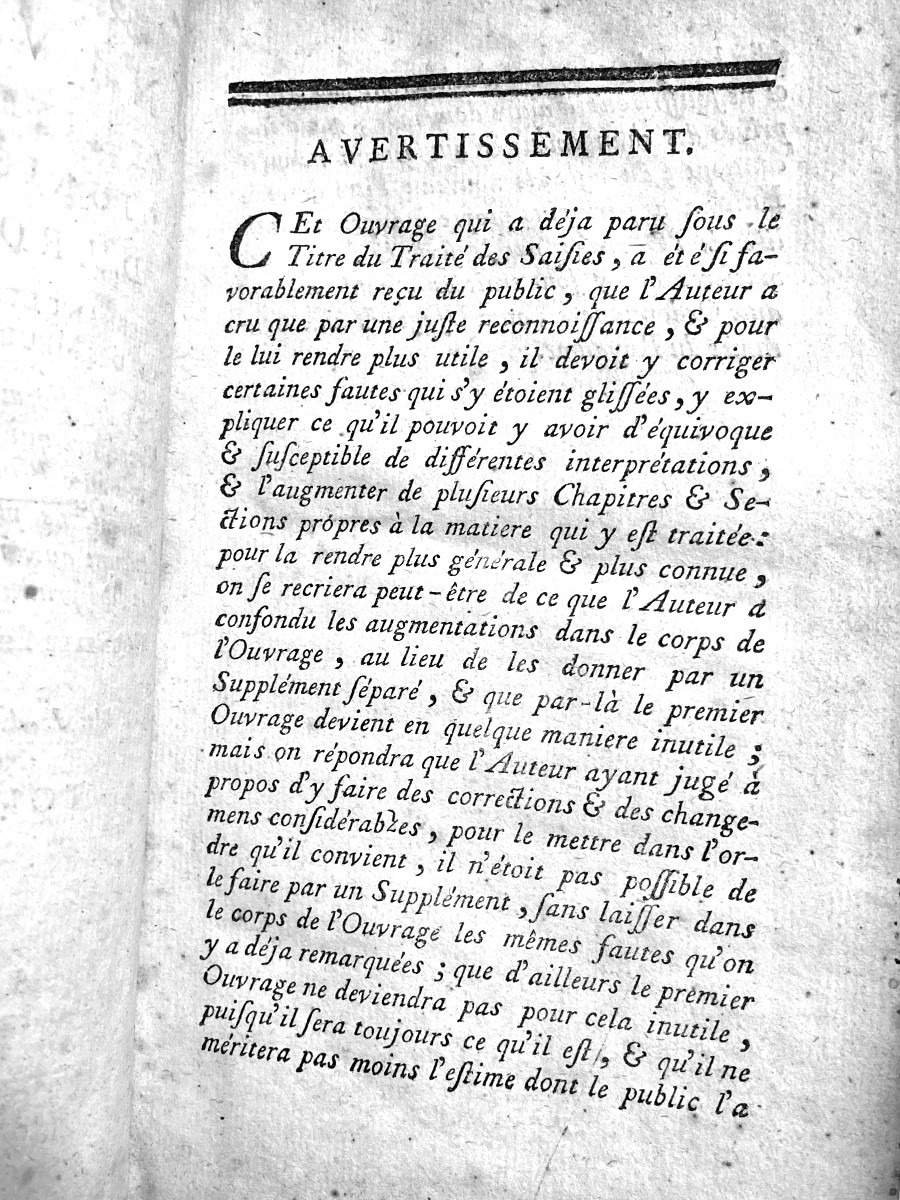 AVERTISSEMENT.
CEt Ouvrage qui a déja paru ſous le
Titre du Traité des Saiſies, a ét é ſi fa-
vorablement reçu du public, que l'Auteur a
cru que par une juſte reconnoiſſance, & pour
le lui rendre plus utile, il devoit y corriger
certaines fautes qui s'y étoient gliſſées, y ex-
pliquer ce qu'il pouvoit y avoir d'équivoque
& ſuſceptible de différentes interprétations,
& l'augmenter de pluſieurs Chapitres & Se-
ctions própres à la matiere qui y eſt traitée:
pour la rendre plus générale & plus connue,
on ſe recriera peut-être de ce que l'Auteur a
confondu les augmentations dans le corps de
l'Ouvrage, au lieu de les donner par un
Supplément ſéparé, & que par-là le premier
Ouvrage devient en quelque maniere inutile;
mais on répondra que l'Auteur ayant jugé à
propos d'y faire des corrections & des change-
mens conſidérables, pour le mettre dans l'or-
dre qu'il convient, il n'étoit pas poſſible de
le faire par un Supplément, ſans laiſſer dans
le corps de l'Ouvrage les mêmes fautes qu'on
y a déja remarquées; que d'ailleurs le premier
Ouvrage ne deviendra pas pour cela inutile,
puiſqu'il ſera toujours ce qu'il eſt, & qu'il ne
méritera pas moins l'eſtime dont le public l'a